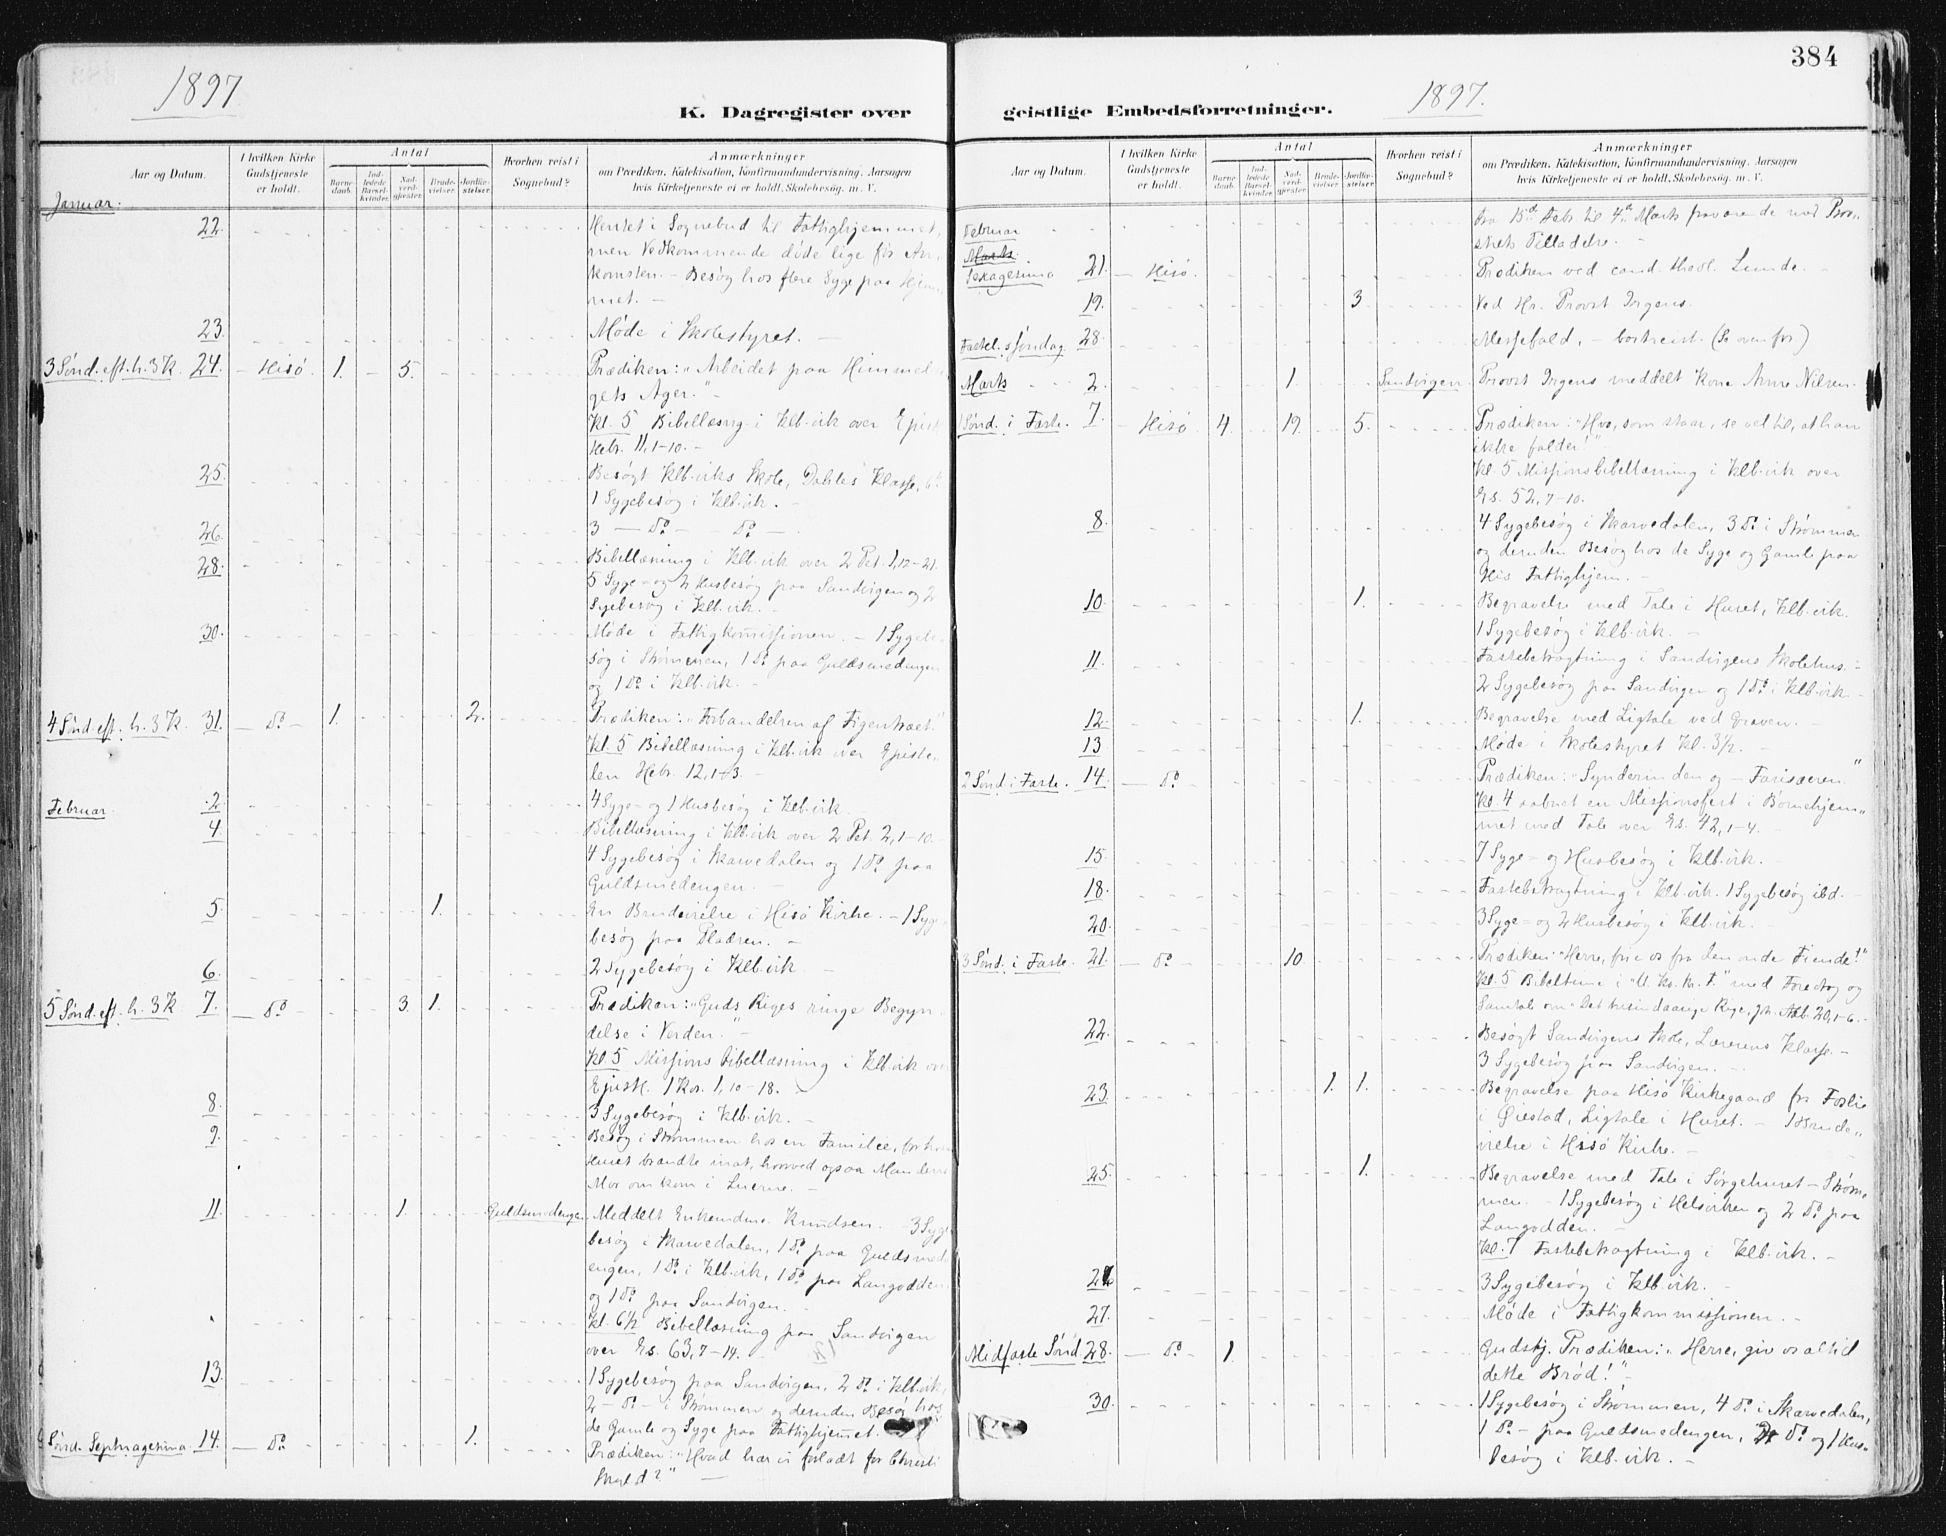 1897
K. Dagregister over
Aar og Datum.
I hvilken Kirke Gudstjeneste er holdt.
Antal
Barnedaab.
Indledede Barselkvinder.
Nadverdgjester.
Brudevielser.
Jordfæstelser.
Hvorhen reist i Sognebud?
Anmærkninger
om Prædiken, Katekisation, Konfirmandundervisning, Aarsagen
hvis Kirketjeneste ei er holdt, Skolebesøg. m. V.
Januar.
22. Hentet i Sognebud til Fattighjemmet,
men Vedkommende døde lige før An-
komsten. - Besøg hos flere Syge paa Hjem-
met. -
23. Møde i Skolestyret. -
3 Sønd. eft. h. 3 K. 24. - Hisö. 1. 5. Prædiken: "Arbeidet paa Himmel-
gets Ager."
Kl. 5 Bibellæsning i Klb.vik over Epist.
Hebr. 11, 1-10. -
25. Besøgt Klb.viks Skole, Dahles Klasse,
1 Sygebesøg i Klb.vik. -
26. 3 - Do - Do -
28. Bibellæsning i Klb.vik over 2 Pet. 1, 12-21.
5 Syge- og 2 Husbesøg paa Sandvigen og 2
Sygebesøg i Klb.vik. -
30. Møde i Fattigkommissionen. - 1 Sygebe-
søg i Strømmen, 1 Do paa Guldsmedengen
og 1 Do i Klb.vik. -
4 Sønd. eft. h. 3 K. 31. - Do - 1. 2. Prædiken: "Forbandelsen af Figentræet."
Kl. 5 Bibellæsning i Klb.vik over Episte-
len Hebr. 12, 1-3. -
Februar. 2. 4 Syge- og 1 Husbesøg i Klb.vik.
4. Bibellæsning i Klb.vik over 2 Pet. 2, 1-10. -
4 Sygebesøg i Skarvedalen og 1 Do paa
Guldsmedengen. -
5. 1. En Brudevielse i Hisö Kirke. - 1 Syge-
besøg paa Pladsen. -
6. 2 Sygebesøg i Klb.vik -
5 Sønd. eft. h. 3 K. 7. - Do - 3. 1. Prædiken: "Guds Riges ringe Begyn-
delse i Verden." -
Kl 5 Missions bibellæsning i Klb.vik over
Epistl. 1 Kor. 1, 10-18. -
8. 3 Sygebesøg i Klb.vik. -
9. Besøg i Strømmen hos en Familie, for hvem
Huset brændte inat, hvorved ogsaa Mandens
Mor omkom i Luerne. -
11. 1. Guldsmedengen. Meddelt Enkemdme. Knudsen. - 3 Syge-
besøg i Skarvedalen, 1 Do paa Guldsmed-
engen, 1 Do i Klb.vik, 1 Do paa Langodden
og 1 Do paa Sandvigen. -
Kl. 6½ Bibellæsning paa Sandvigen
over Es. 63, 7-14. -
13. 1 Sygebesøg paa Sandvigen, 2 Do i Klb.vik,
2 - Do - i Strømmen og desuden Besøg hos
de Gamle og Syge paa Fattighjemmet. -
Sønd. Septuagesima. 14. - Do. 1. Prædiken: "Hvad har vi forladt for Christi
Skyld?" -
384
1897.
geistlige Embedsforretninger.
Aar og Datum.
I hvilken Kirke Gudstjeneste er holdt.
Antal
Barnedaab.
Indledede Barselkvinder.
Nadverdgjester.
Brudevielser.
Jordfæstelser.
Hvorhen reist i Sognebud?
Anmærkninger
om Prædiken, Katekisation, Konfirmandundervisning, Aarsagen
hvis Kirketjeneste ei er holdt, Skolebesøg. m. V.
Februar Fra 15de Feb. til 4de Marts fraværende med Prov-
stens Tilladelse. -
Marts.
Sexagesima 21. - Hisö. Prædiken ved cand. theol. Lunde. -
19. 3 Ved Hr. Provst Irgens.
Fastel.søndag 28. Messefald, - bortreist. (Se ovenfor)
Marts 2. 1. Sandvigen. Provst Irgens meddelt Kone Anne Nilsen.
1 Sønd. i Faste. 7. - Hisö 4. 19. 5. Prædiken: "Hvo, som staar, se vel til, at han
ikke falder!"
Kl. 5 Missionsbibellæsning i Klb.vik over
Es. 52, 7-10.
8. 4 Sygebesøg i Skarvedalen, 3 Do i Strømmen
og desuden Besøg hos de Syge og Gamle paa
His Fattighjem. -
10. 1. Begravelse med Tale i Huset, Klb.vik.
1 Sygebesøg i Klb.vik. -
11. Fastebetragtning i Sandvigens Skolehus. -
2 Sygebesøg paa Sandvigen og 1 Do i Klb.vik. -
12. 1. Begravelse med Ligtale ved Graven. -
13 Møde i Skolestyret Kl. 3½. -
2 Sønd. i Faste. 14. - Do Prædiken: "Synderinden og Farisæeren."
Kl. 4 aabnet en Missionsfest i Børnehjem-
met med Tale over Es. 42, 1-4. -
15. 7 Syge- og Husbesøg i Klb.vik. -
18. Fastebetragtning i Klb.vik. 1 Sygebesøg ibd. -
20. 3 Syge- og 2 Husbesøg i Klb.vik. -
3 Sønd. i Faste. 21. - Do 10. Prædiken: "Herre, fri os fra den onde Fiende!"
Kl. 5 Bibeltime i "U. K. K. F." med Foredrag og
Samtale om "Det tusindaarige Rige, Joh. Aab. 20, 1-6. -
22. Besøgt Sandvigens Skole, Lærerens Klasse. -
3 Sygebesøg paa Sandvigen. -
23. 1. 1. Begravelse paa Hisö Kirkegaard fr.
i Øiestad, Ligtale i Huset. - 1 Brude-
vielse i Hisö Kirke. -
25. 1. Begravelse med Tale i Sørgehuset - Strøm-
men. - 1 Sygebesøg i Helviken og 2 Do paa
Langodden. -
Kl. 7 Fastebetragtning i Klb.vik. -
26 3 Sygebesøg i Klb.vik. -
27. Møde i Fattigkommissionen. -
Midfaste Sønd 28. - Do - 1. Gudstj. Prædiken: "Herre, giv os altid
dette Brød!" -
30. 1 Sygebesøg i Strømmen, 4 Do i Skarvedalen,
1 Do - paa Guldsmedengen, Do og 1 Hus-
besøg i Klb.vik. -